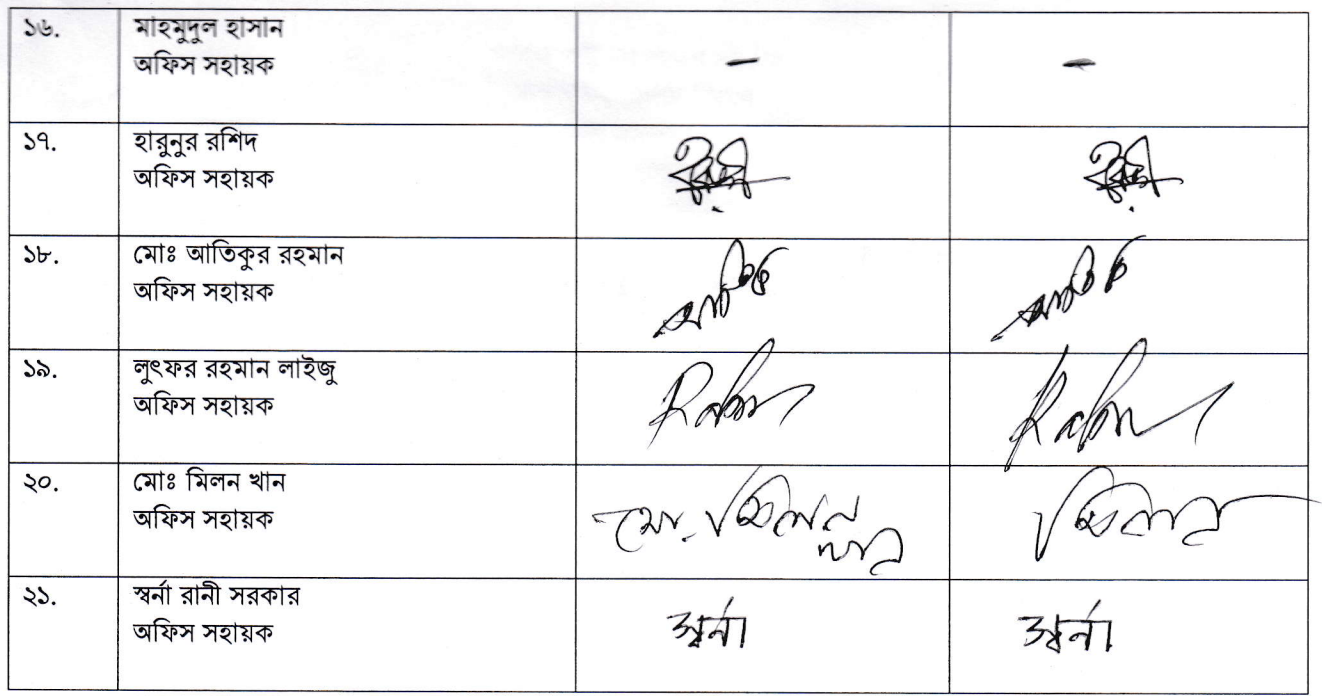 ১৬. মাহমুদুল হাসান
অফিস সহায়ক - -
১৭. হারুনুর রশিদ
অফিস সহায়ক
১৮. মোঃ আতিকুর রহমান
অফিস সহায়ক আতিক আতিক
১৯. লুৎফর রহমান লাইজু
অফিস সহায়ক
২০. মোঃ মিলন খান
অফিস সহায়ক মো. মিলন খান মিলন
২১. স্বর্না রানী সরকার
অফিস সহায়ক স্বর্না স্বর্না